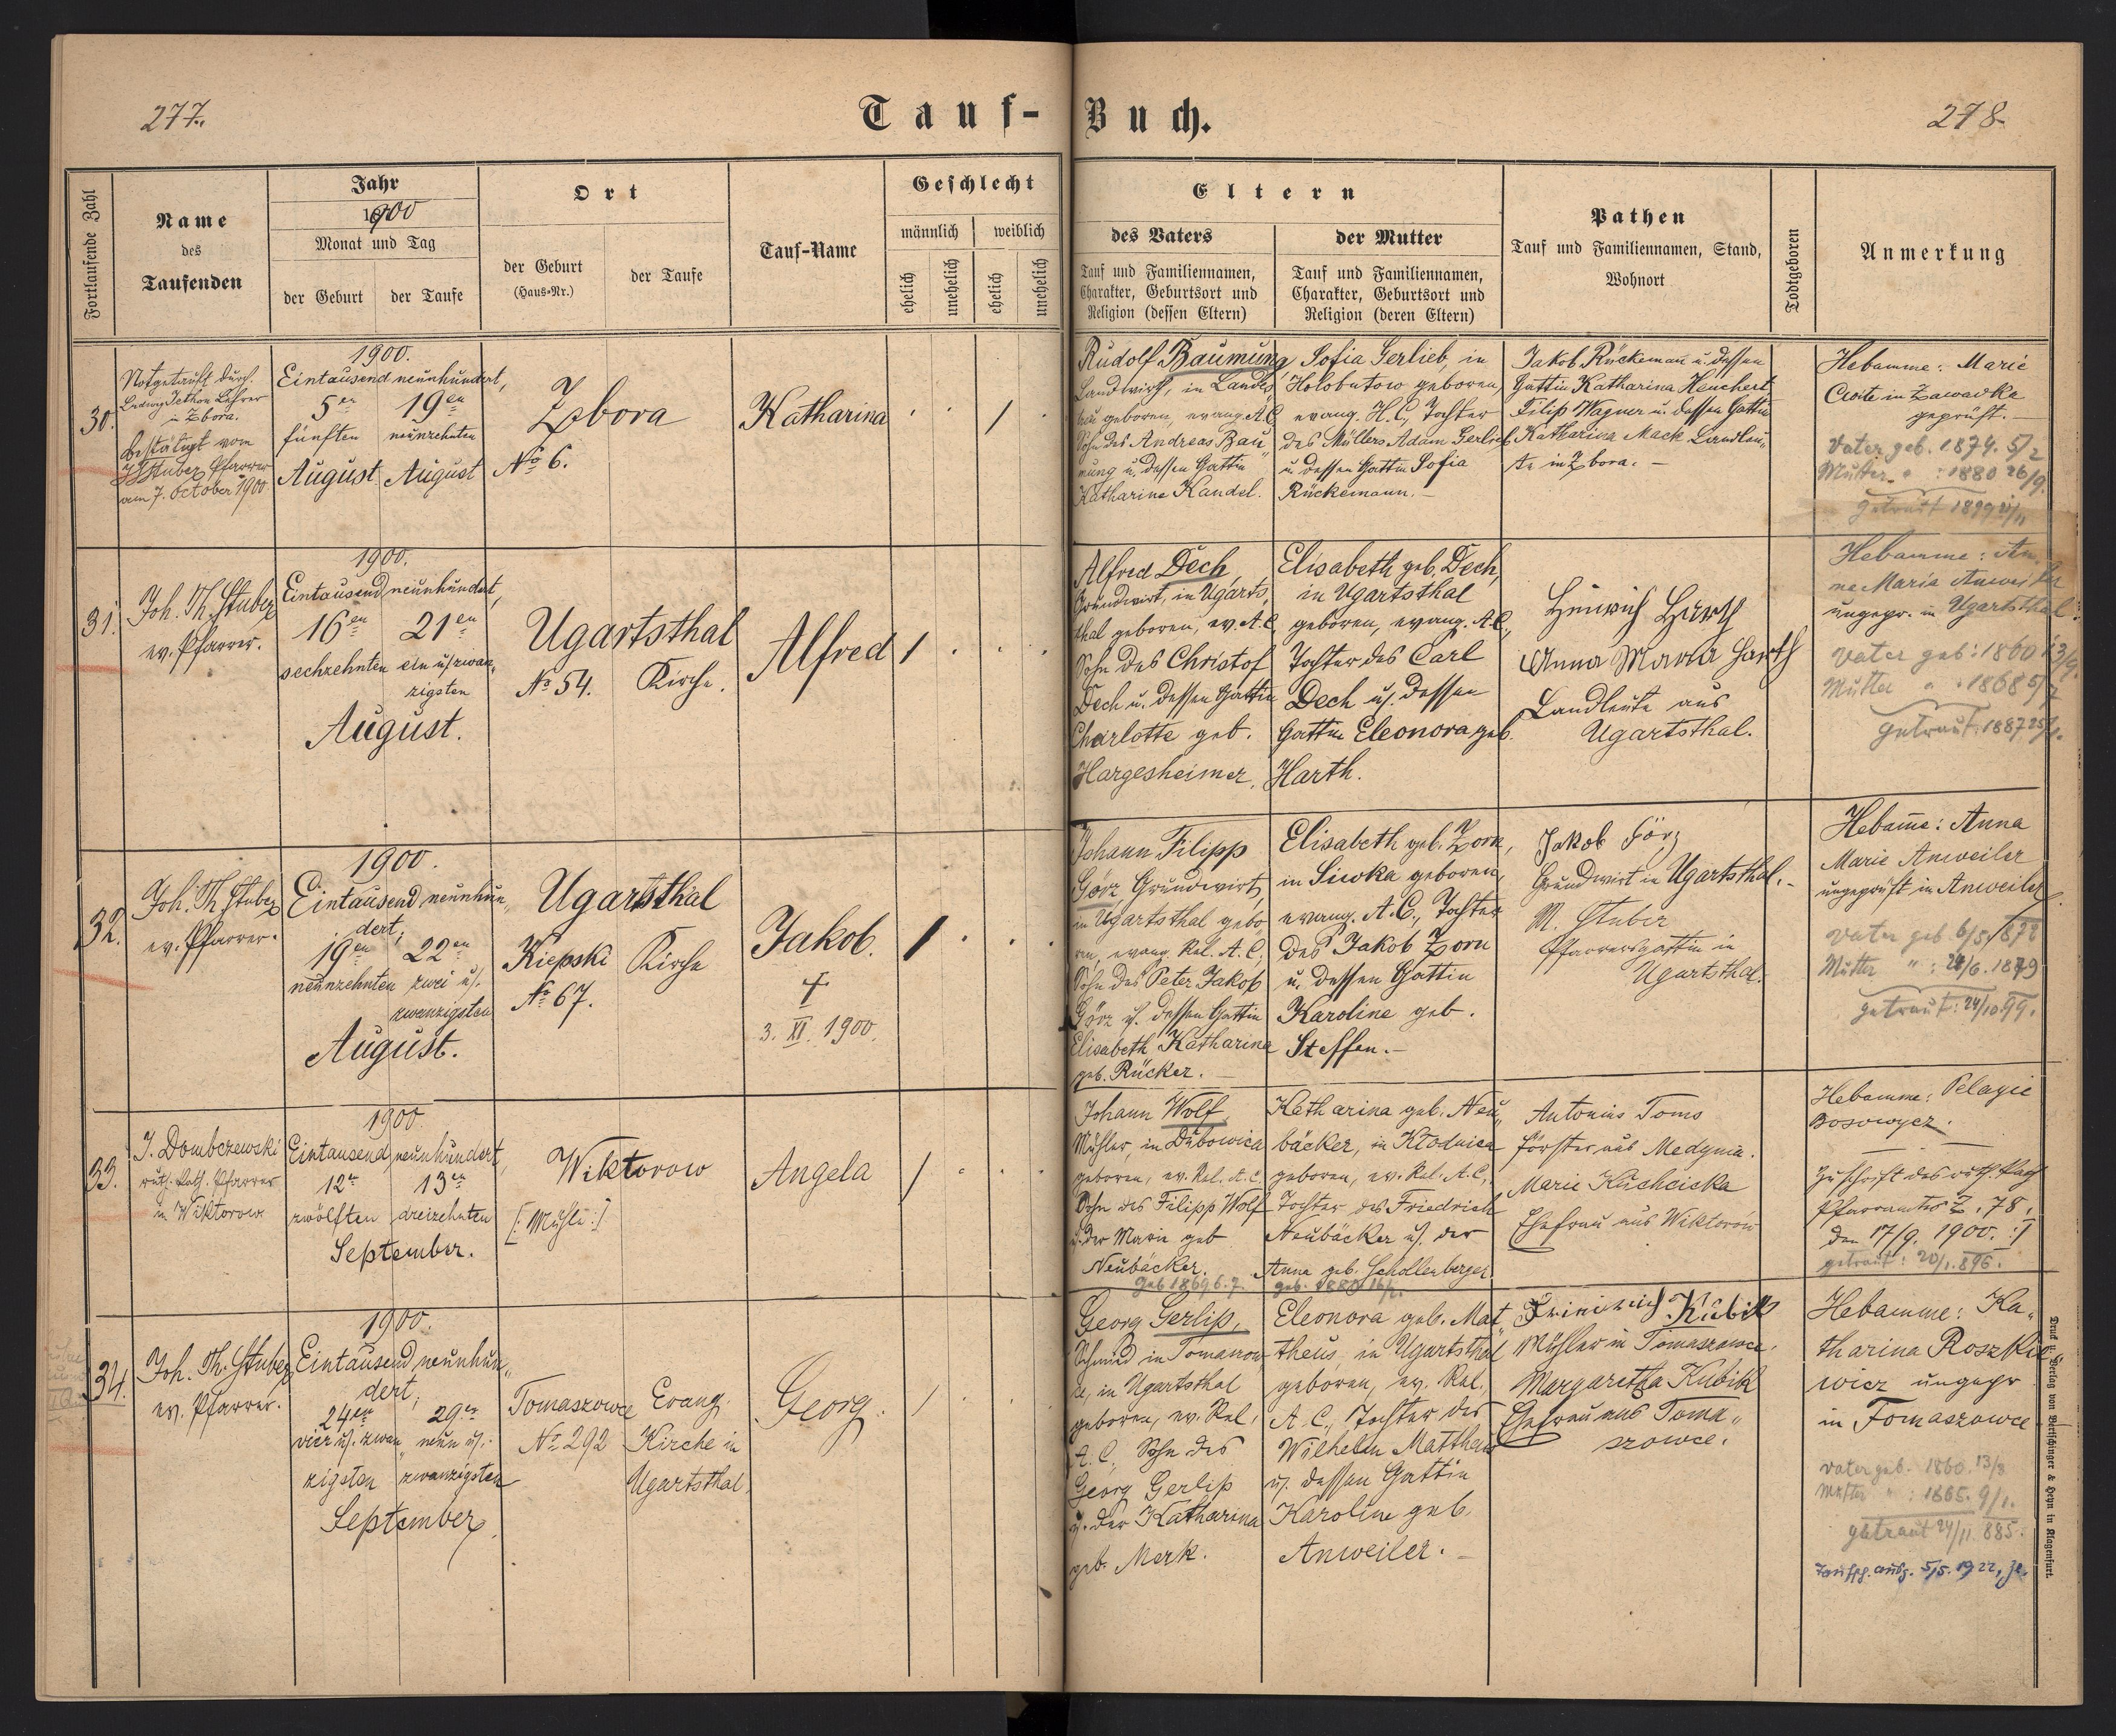 277.
Tauf-Buch.
278.
Fortlaufende Zahl
Name
des
Taufenden
Jahr
1900
Monat und Tag
der Geburt
der Taufe
Ort
der Geburt
(Haus-Nr.)
der Taufe
Tauf-Name
Geschlecht
männlich
weiblich
ehelich
unehelich
ehelich
unehelich
Eltern
des Vaters
Tauf und Familiennamen,
Charakter, Geburtsort und
Religion (dessen Eltern)
der Mutter
Tauf und Familiennamen,
Charakter, Geburtsort und
Religion (deren Eltern)
Pathen
Tauf und Familiennamen, Stand,
Wohnort
Todtgeboren
Anmerkung
30.
Notgetauft durch
Ludwig Lehrer
in Zbora.
Bestätigt vom
Stuber Pfarrer
am 7. October 1900
1900.
Eintausend neunhundert,
5en 19en
fünften neunzehnten
August August
Zbora
No 6.
Katharina
1
Rudolf Baumung
Landwirth, in Lands
treu geboren, evang. A.C.
Sohn des Andreas Bau
mung u. dessen Gattin
Katharina Kandel.
Sofia Gerlieb, in
Holobutow geboren,
evang. H.C., Tochter
des Müllers Adam Gerlieb
u. dessen Gattin Sofia
Rückemann.
Jakob Rückeman u. dessen
Gattin Katharina Heuchert
Filip Wagner u. dessen Gattin
Katharina Mack Landleu„
te in Zbora.
Hebamme: Marie
in Zawadka
geprüft.
Vater geb. 1874. 5/2
Mutter " : 1880 26/9.
getraut 1899 21/11
31.
Joh. Th. Stuber
ev. Pfarrer.
1900.
Eintausend neunhundert,
16en 21en
sechzehnten ein u/ zwan„
zigsten
August.
Ugartsthal
No 54. Kirche.
Alfred
1
Alfred Dech,
Grundwirt, in Ugarts„
thal geboren, ev. A.C.
Sohn des Christof
Dech u. dessen Gattin
Charlotte geb.
Hargesheimer.
Elisabeth geb. Dech,
in Ugartsthal
geboren, evang. A.C.,
Tochter des Carl
Dech u/. dessen
Gattin Eleonora geb.
Harth.
Heinrich Harth
Anna Maria Harth
Landleute aus
Ugartsthal.
Hebamme: An„
ne Maria Anweiler
ungepr. in Ugartsthal.
Vater geb: 1860 13/9.
Mutter " : 1868 5/7
getraut: 1887 25/1.
32.
Joh. Th. Stuber
ev. Pfarrer.
1900.
Eintausend neunhun„
dert,
19en 22en
neunzehnten zwei u/.
zwanzigsten
August.
Ugartsthal
Kiepski Kirche
No 67.
Jakob.
+
3. XI. 1900.
1
Johann Filipp
Görz Grundwirt,
in Ugartsthal gebo
ren, evang. Rel. A.C.,
Sohn des Peter Jakob
Görz u/. dessen Gattin
Elisabeth Katharina
geb. Rücker.
Elisabeth geb. Zorn,
in Siwka geboren,
evang. A.C., Tochter
des Jakob Zorn
u. dessen Gattin
Karoline geb.
Steffen.
Jakob Görz
Grundwirt in Ugartsthal.
M. Stuber
Pfarrersgattin in
Ugartsthal.
Hebame: Anna
Marie Anweiler
ungeprüft in Anweiler
Vater geb 6/5. 1872
Mutter " : 24/6. 1879
getraut: 24/10 99.
33.
J. Dombczewski
ruth. kath. Pfarrer
in Wiktorow
1900.
Eintausend neunhundert,
12en 13en
zwölften dreizehnten
September.
Wiktorow
[: Mühle :]
Angela
1
Johann Wolf
Müller, in Dubowica
geboren, ev. Rel. A.C.
Sohn des Filipp Wolf
u. der Marie geb
Neubäcker.
geb 1869 6.7.
Katharina geb. Neu„
bäcker, in Kłodnica
geboren, ev. Rel. A.C.,
Tochter des Friedrich
Neubäcker u/. der
Anna geb. Schollenberger.
Antonius Toms
Förster aus Medynia.
Marie Kuchcicka
Ehefrau aus Wiktorów
Hebamme: Pelagie
Bosowycz.
Zuschrift des ruth. kath
Pfarramtes Z. 78.
den 17/9. 1900. :/
getraut: 20/1. 896.
34.
Joh. Th. Stuber
ev. Pfarrer.
1900.
Eintausend neunhun„
dert,
24en 29en
vier u/. zwan„ neun u/.
zigsten zwanzigsten
September.
Tomaszowce Evang.
No 292 Kirche in
Ugartsthal.
Georg.
1
Georg Gerliß,
Schmied in Tomaszow
ce, in Ugartsthal
geboren, ev. Rel.
A.C., Sohn des
Georg Gerliß
u. der Katharina
geb. Merk.
Eleonora geb. Mat„
theus, in Ugartsthal
geboren, ev. Rel.
A.C., Tochter des
Wilhelm Mattheus
u/. dessen Gattin
Karoline geb.
Anweiler.
Kubik
Müller in Tomaszowce.
Margaretha Kubik
Ehefrau aus Toma„
szowce.
Hebamme: Ka„
tharina Roszkie
wicz ungepr
in Tomaszowce
Vater geb. 1860. 13/3
Mutter " : 1865. 9/1.
getraut 24/11. 885.
Taufsch. ausg. 5/5. 1922,
Druck u. Verlag von Bertschinger & Heyn in Klagenfurt.